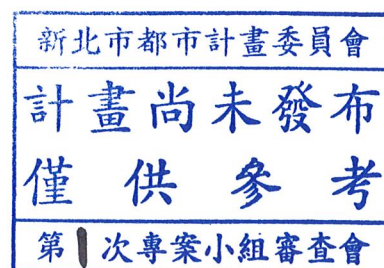 新北市都市計畫委員會
計畫尚未發布
僅供參考
第1次專案小組審查會